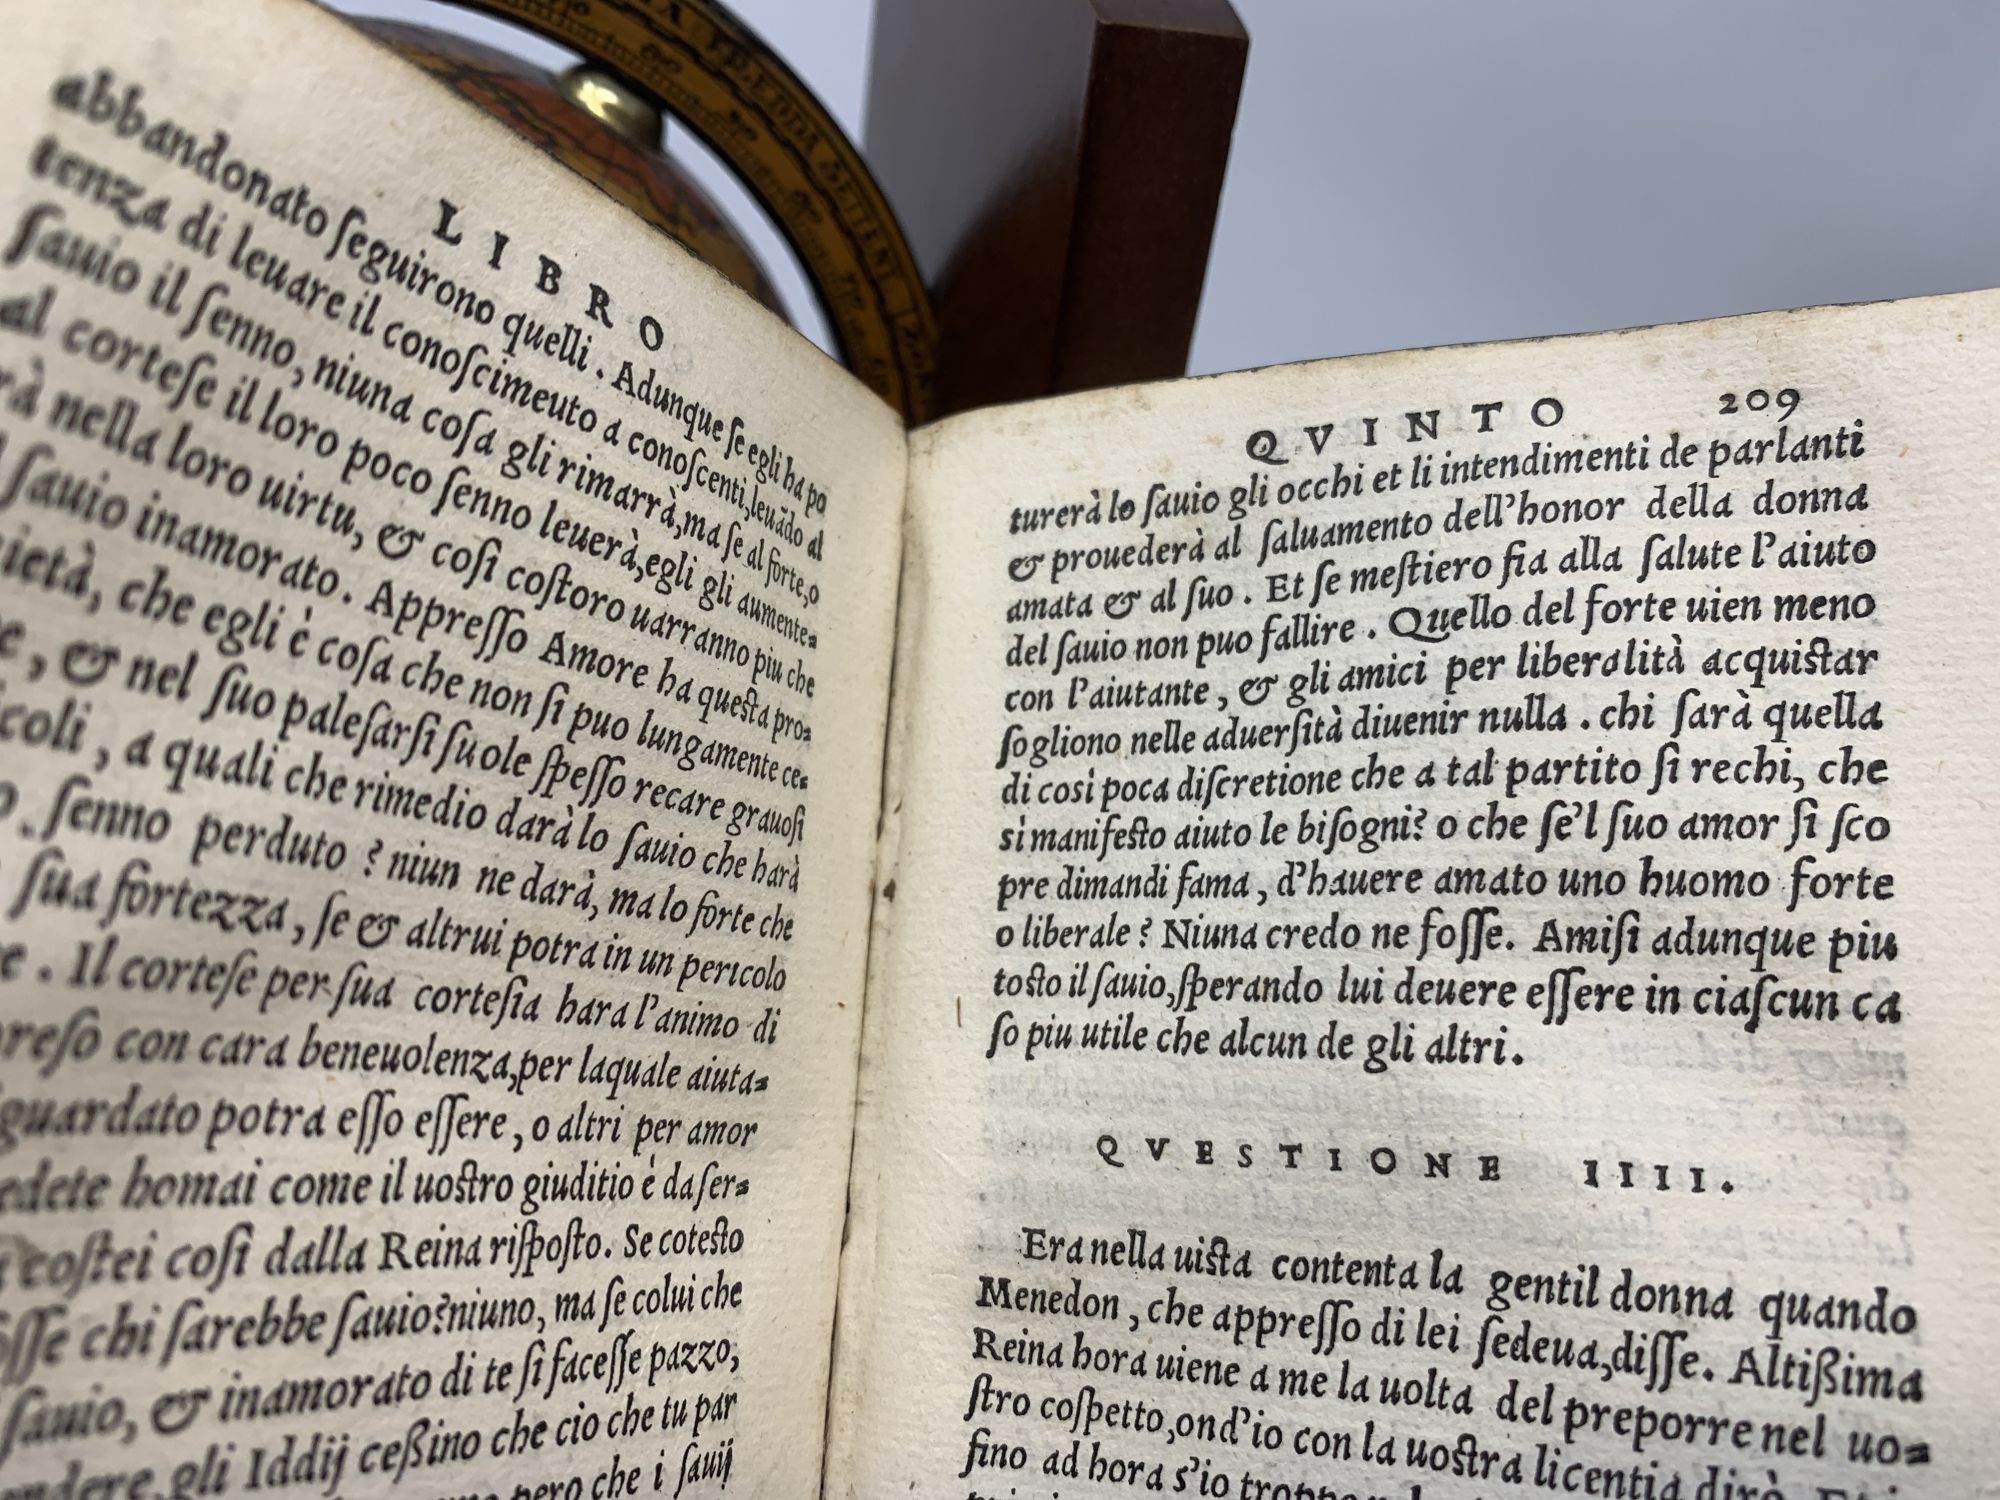 LIBRO
abbandonato ſeguirono quelli. Adunque ſe egli ha po
tenza di leuare il conoſcimeuto a conoſcenti, leuādo al
ſauio il ſenno, niuna coſa gli rimarrà, ma ſe al forte, o
al corteſe il loro poco ſenno leuerà, egli gli aumente⸗
rà nella loro uirtu, & coſi coſtoro uarranno piu che
ſauio inamorato. Appreſſo Amore ha queſta pro⸗
ietà, che egli è coſa che non ſi puo lungamente ce⸗
, & nel ſuo paleſarſi ſuole ſpeſſo recare grauoſi
coli, a quali che rimedio darà lo ſauio che harà
ſenno perduto? niun ne darà, ma lo forte che
ſua fortezza, ſe & altrui potra in un pericolo
. Il corteſe per ſua corteſia hara l'animo di
preſo con cara beneuolenza, per laquale aiuta⸗
guardato potra eſſo eſſere, o altri per amor
edete homai come il uoſtro giuditio è da ſer⸗
coſtei coſi dalla Reina riſpoſto. Se coteſto
oſſe chi ſarebbe ſauio? niuno, ma ſe colui che
ſauio, & inamorato di te ſi faceſſe pazzo,
endere, gli Iddij ceßino che cio che tu par
pero che i ſauij
QVINTO 209
turerà lo ſauio gli occhi et li intendimenti de parlanti
& prouederà al ſaluamento dell'honor della donna
amata & al ſuo. Et ſe meſtiero fia alla ſalute l'aiuto
del ſauio non puo fallire. Quello del forte uien meno
con l'aiutante, & gli amici per liberalità acquiſtar
ſogliono nelle aduerſità diuenir nulla. chi ſarà quella
di così poca diſcretione che a tal partito ſi rechi, che
sì manifeſto aiuto le biſogni? o che ſe'l ſuo amor ſi ſco
pre dimandi fama, d'hauere amato uno huomo forte
o liberale? Niuna credo ne foſſe. Amiſi adunque piu
toſto il ſauio, ſperando lui deuere eſſere in ciaſcun ca
ſo piu utile che alcun de gli altri.
QVESTIONE IIII.
Era nella uiſta contenta la gentil donna quando
Menedon, che appreſſo di lei ſedeua, diſſe. Altißima
Reina hora uiene a me la uolta del preporre nel uo⸗
ſtro coſpetto, ond'io con la uoſtra licentia dirò. Et
fino ad hora s'io